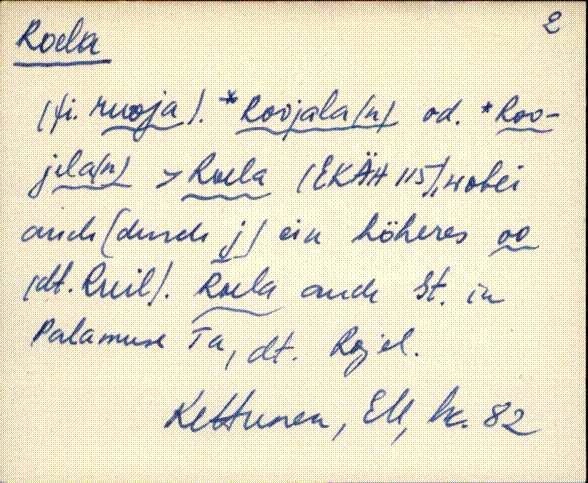 2
Roela
(fi. ruoja). *Roojala(n) od. *Roo-
jela(n) > Roela (EKÄH 115), wobei
auch (durch j) ein höheres oo
(dt. Ruil). Roela auch St. in
Palamuse Ta, dt. Rojel.
Kettunen, EM, lk. 82